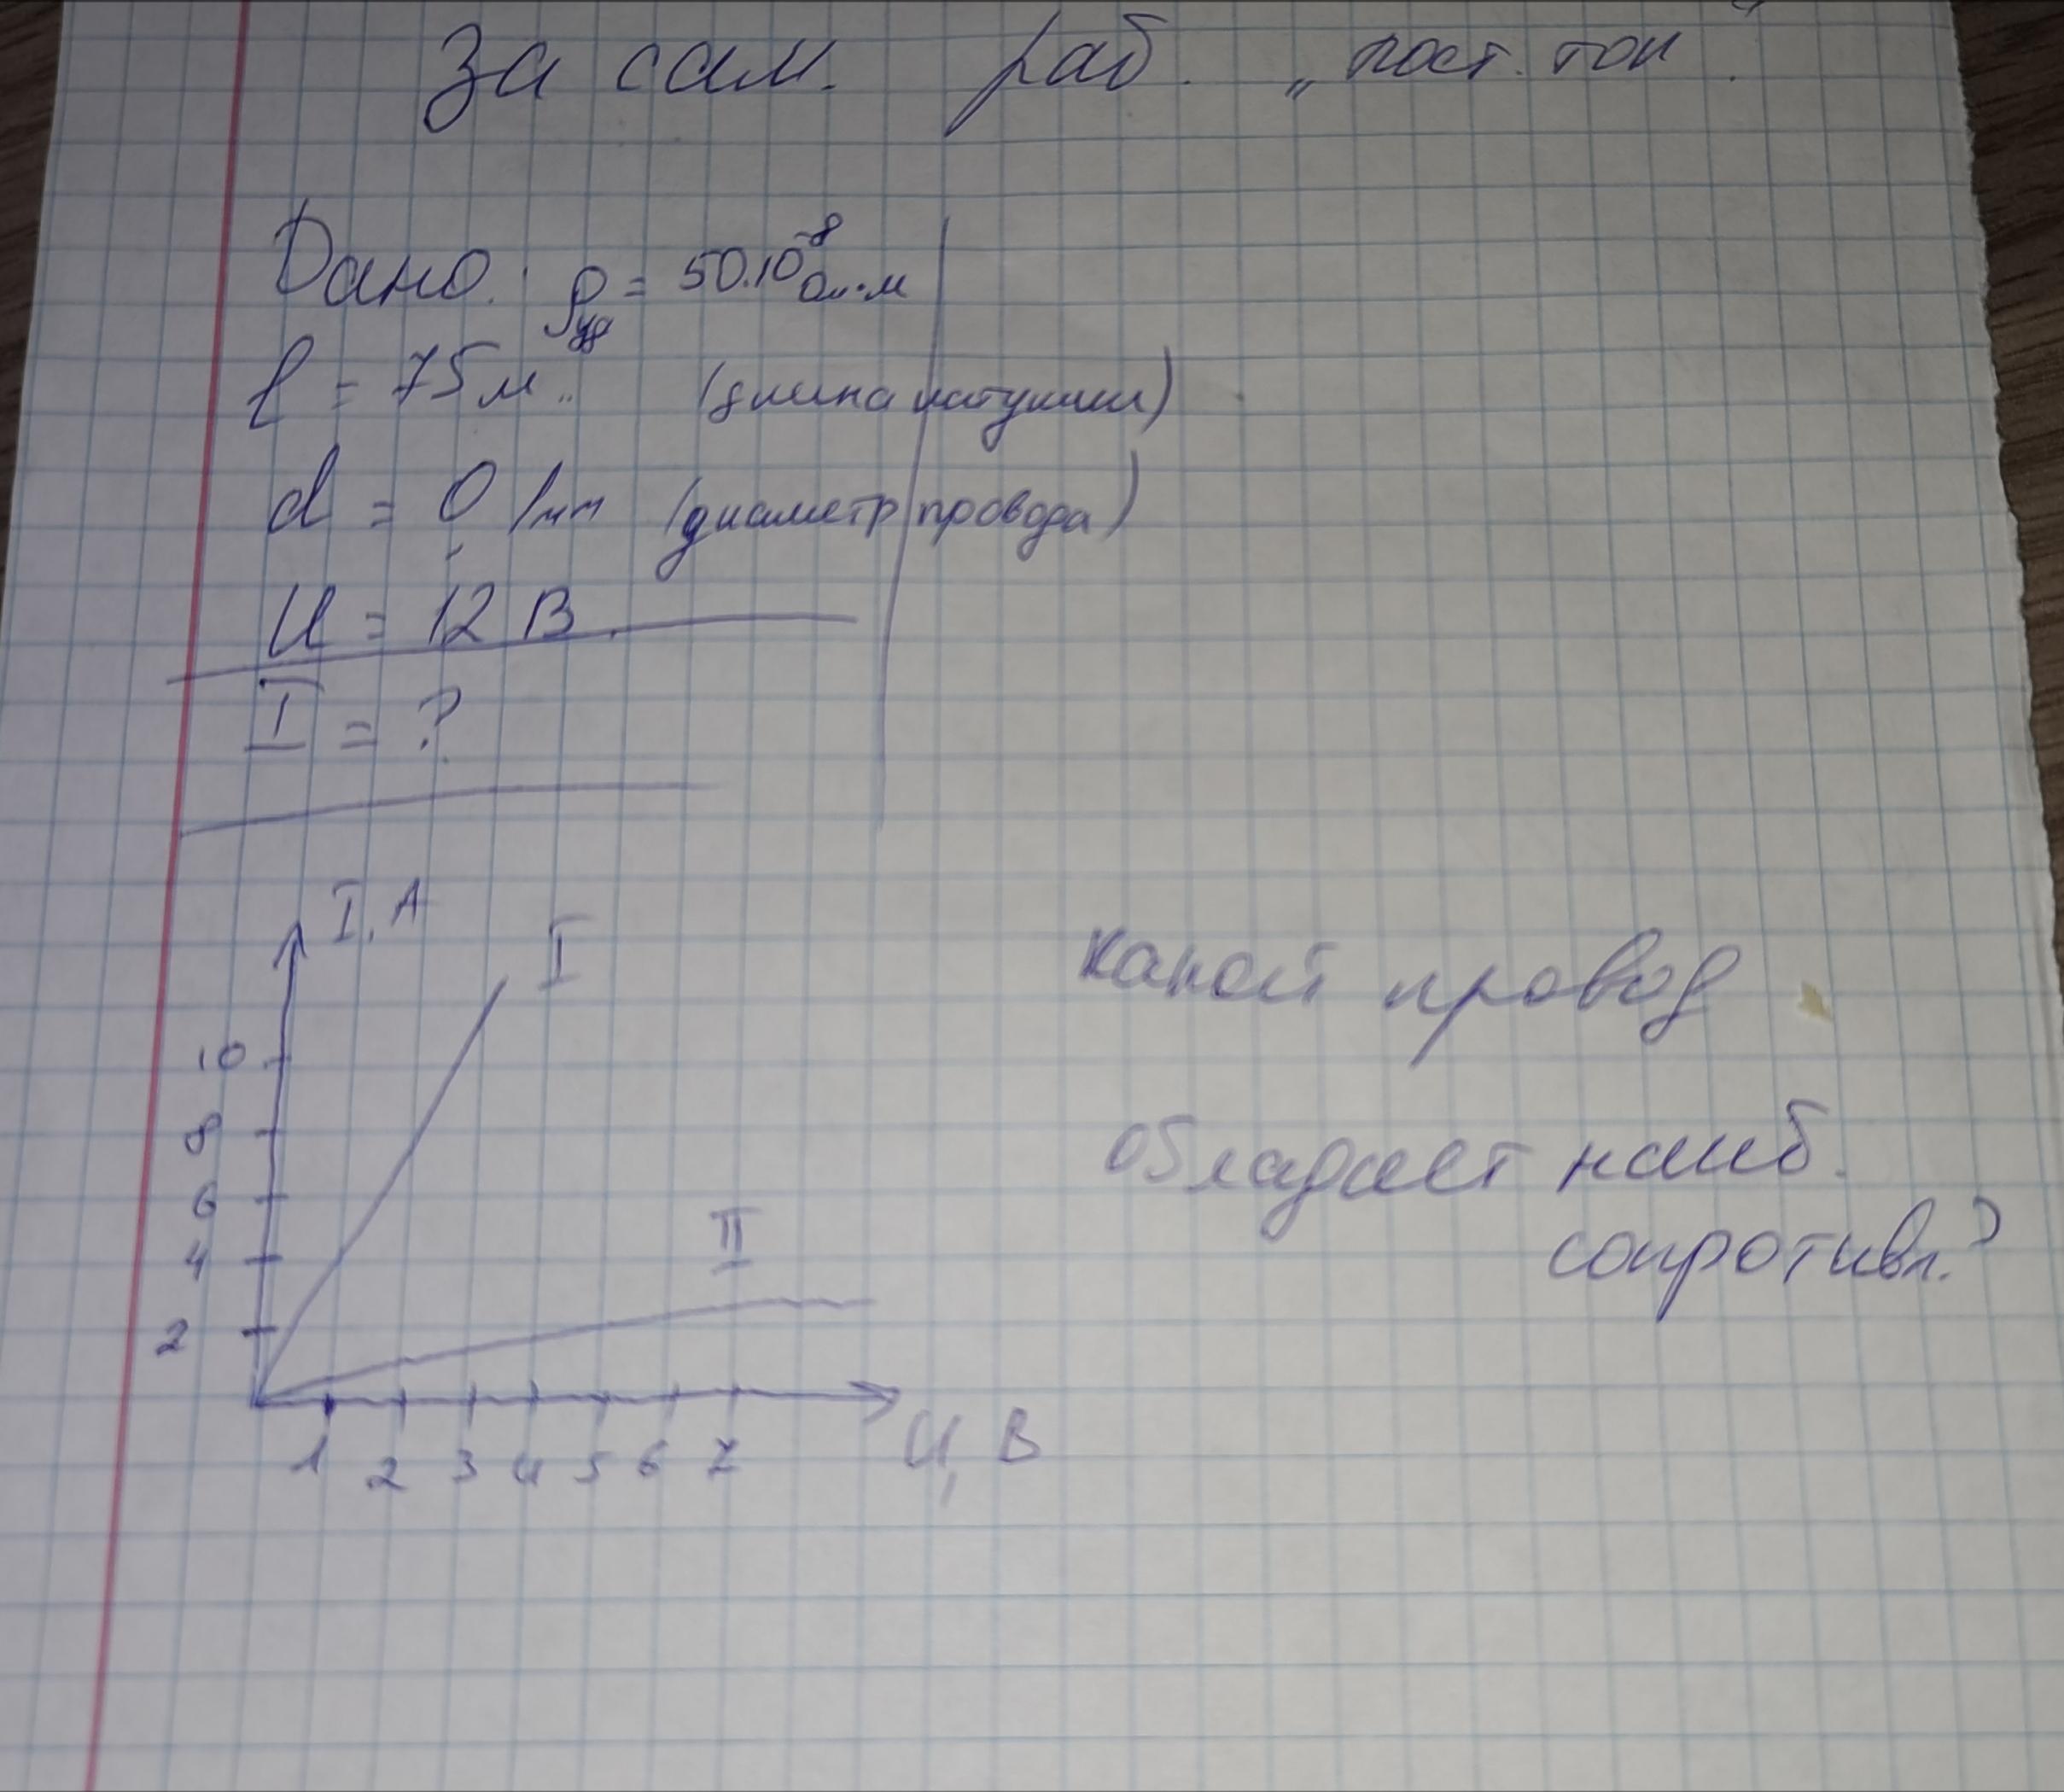 За сам. раб. „пост. ток".
Дано: ρуд = 50.10⁻⁸ Ом·м
l = 75 м.. (длина катушки)
d = 0,1мм (диаметр провода)
U = 12 В.
I = ?
I, A
I
10
8
6
4
2
II
1 2 3 4 5 6 7
U, В
Какой провод
обладает наиб.
сопротивл.?